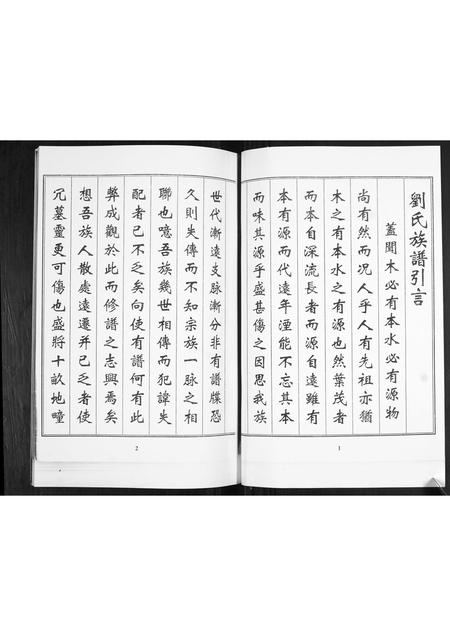 劉氏族譜引言
蓋聞木必有本水必有源物
尚有然而况人乎人有先祖亦猶
木之有本水之有源也然葉茂者
而本自深流長者而源自遠雖有
本有源而代遠年湮能不忘其本
而味其源乎盛甚傷之因思我族
1
世代漸遠支脉漸分非有譜牒恐
久則失傳而不知宗族一脉之相
聯也噫吾族幾世相傳而犯諱失
配者已不乏矣向使有譜何有此
弊成觀於此而修譜之志興焉矣
想吾族人散處遠遷并已乏者使
冗墓靈更可傷也盛將十畝地疃
2